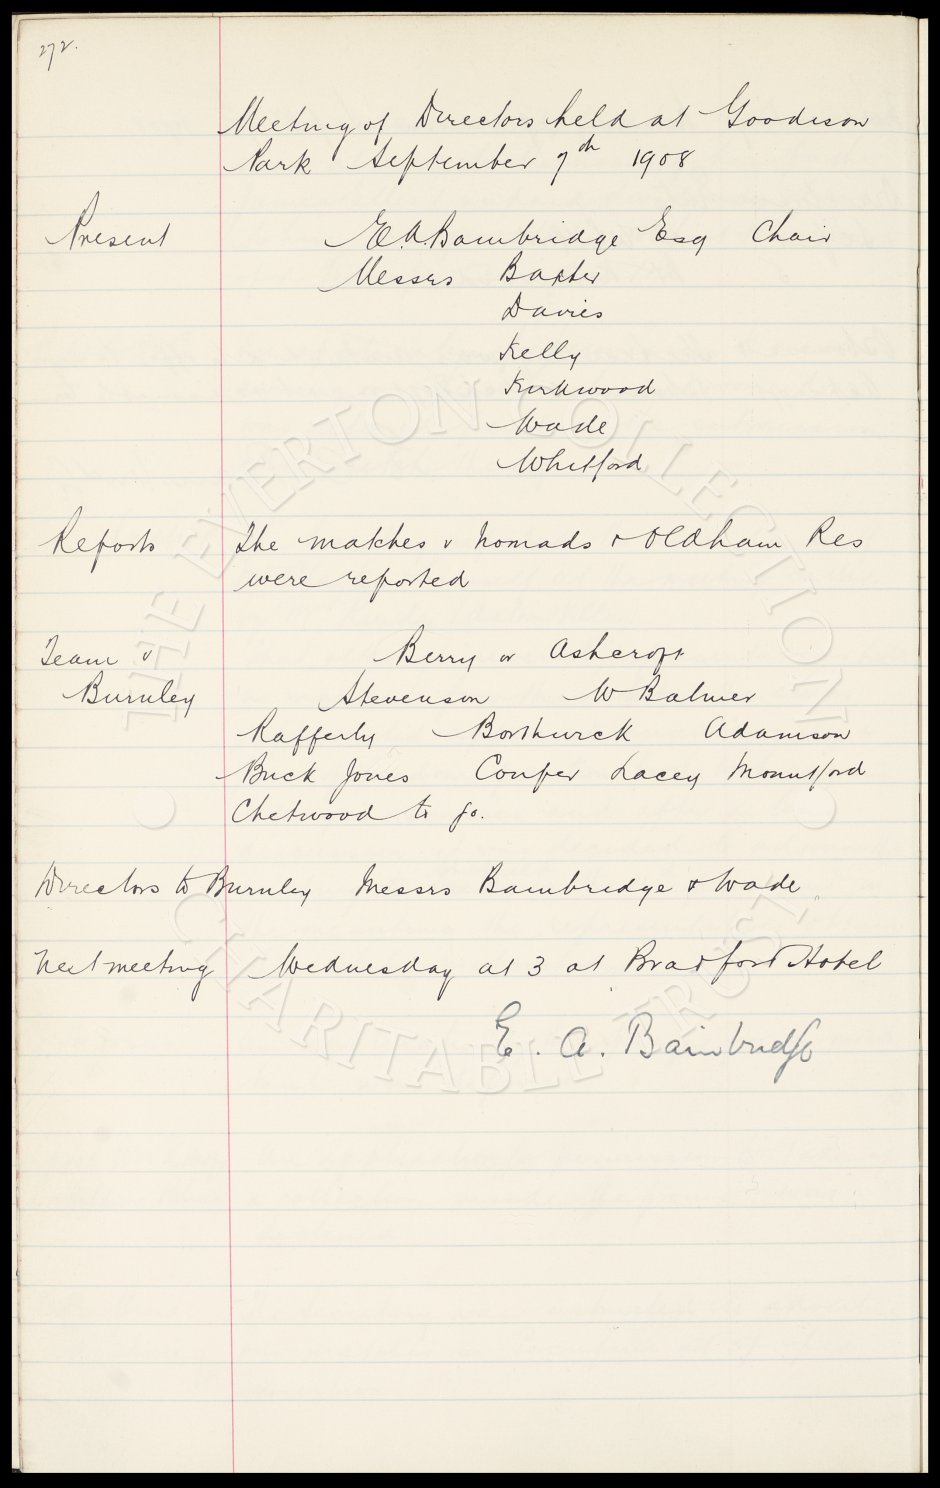 272.
Meeting of Directors held at Goodison
Park September 7th 1908
Present E.A. Bainbridge Esq Chair
Messrs Baxter
Davies
Kelly
Kirkwood
Wade
Whitford
Reports The matches v Nomads & Oldham Res
were reported
Team v Berry or Ashcroft
Burnley Stevenson W Balmer
Rafferty Borthwick Adamson
Buck Jones Couper Lacey Mountford
Chetwood to go.
Directors to Burnley Messrs Bainbridge & Wade
Next meeting Wednesday at 3 at Bradford Hotel
E. A. Bainbridge
THE EVERTON COLLECTION
CHARITABLE TRUST